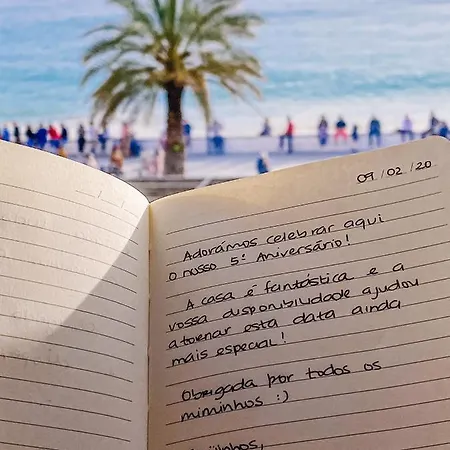 09/02/20
Adorámos celebrar aqui
o nosso 5º Aniversário!
A casa é fantástica e a
vossa disponibilidade ajudou
a tornar esta data ainda
mais especial!
Obrigada por todos os
miminhos :)